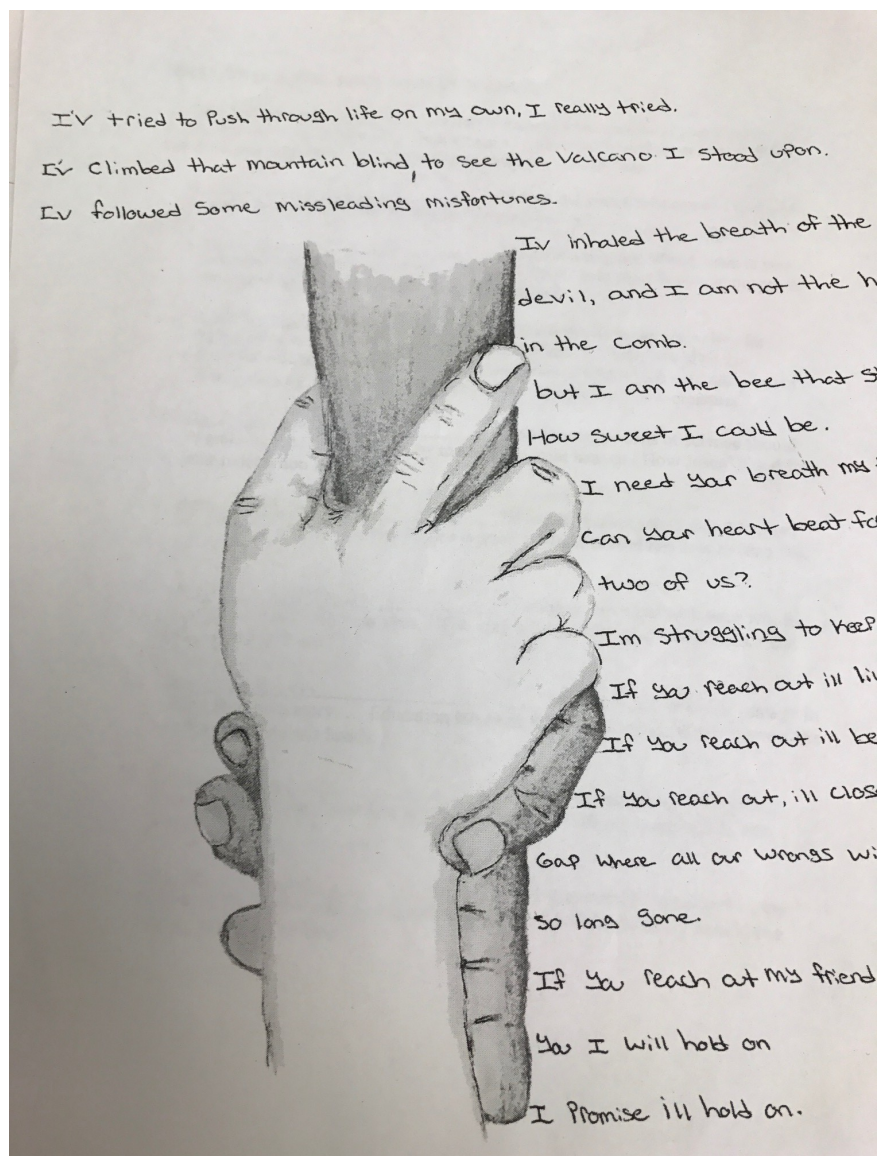 I'V tried to Push through life on my own, I really tried.
I'v Climbed that mountain blind, to see the Valcano I stood upon.
Iv followed Some missleading misfortunes.
Iv inhaled the breath of the
devil, and I am not the
in the comb.
but I am the bee that
How sweet I could be.
I need your breath my
Can your heart beat
two of us?
Im struggling to keep
If you reach out ill
If you reach out ill be
If you reach out, ill
Gap where all our wrongs
so long gone.
If you reach out my friend
You I will hold on
I Promise ill hold on.